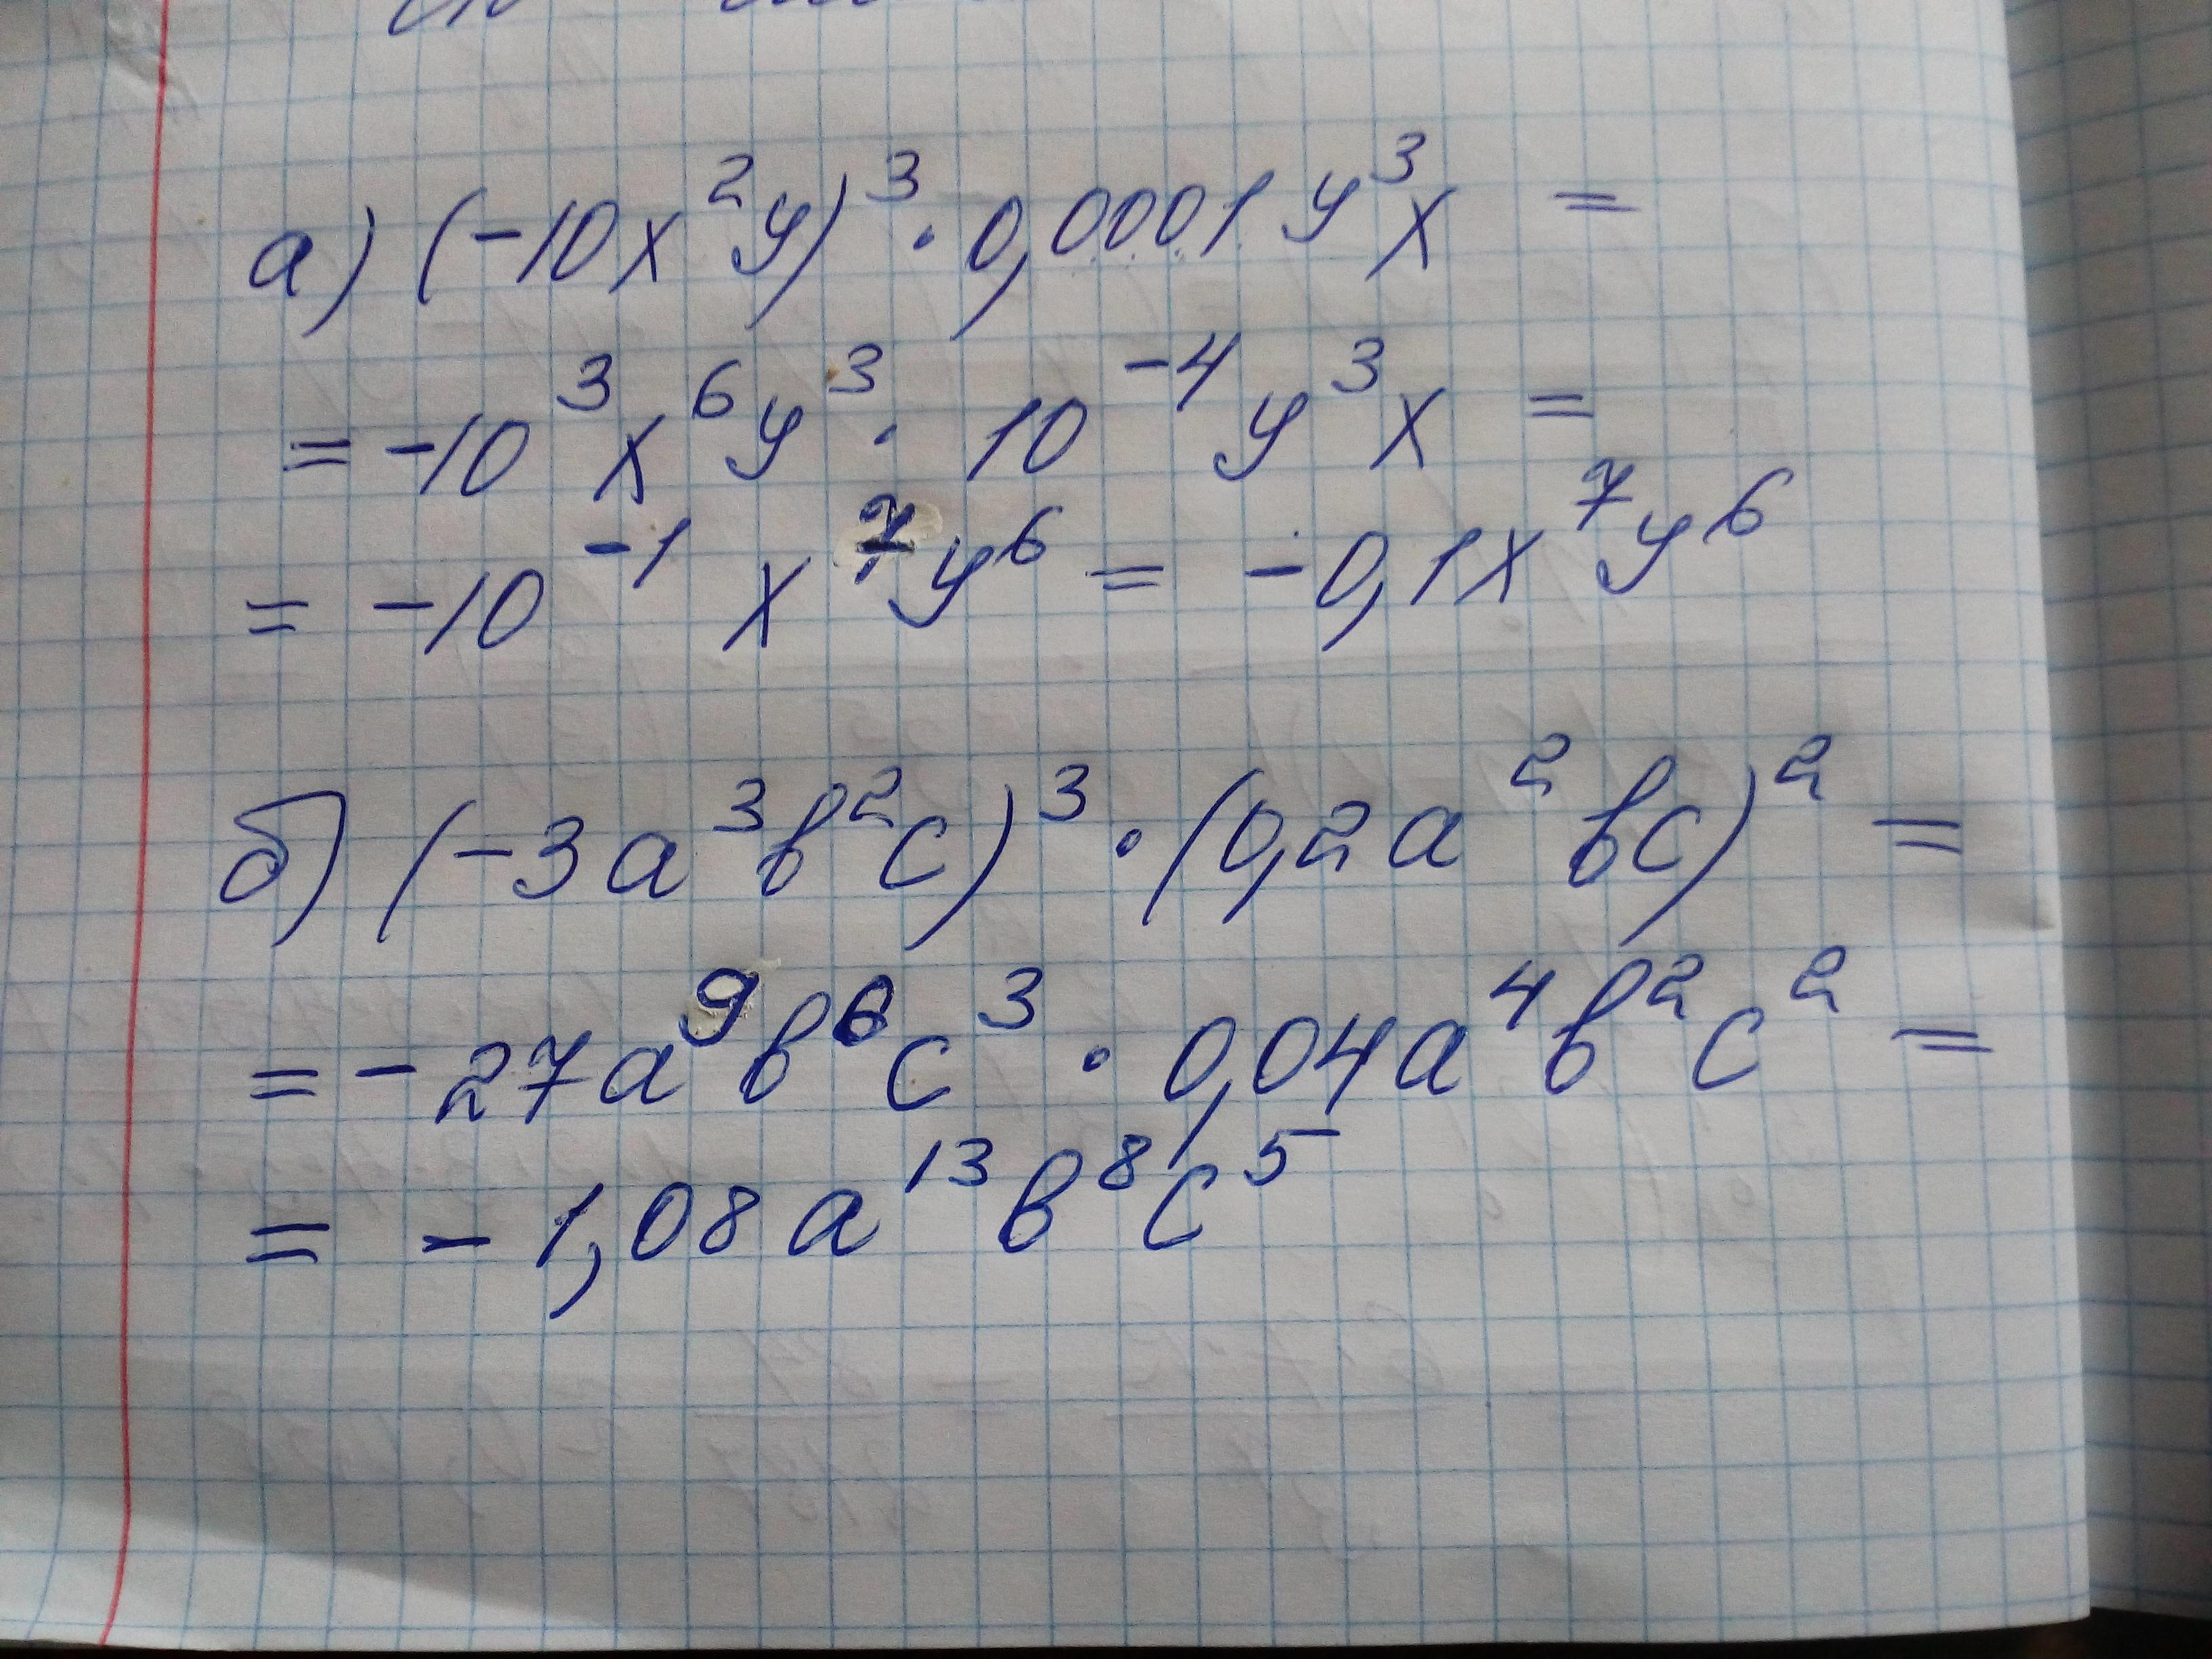 а) (-10x²y)³ · 0,0001y³x =
= -10³x⁶y³ · 10⁻⁴y³x =
= -10⁻¹ x⁷y⁶ = -0,1x⁷y⁶
б) (-3a³b²c)³ · (0,2a²bc)² =
= -27a⁹b⁶c³ · 0,04a⁴b²c² =
= -1,08a¹³b⁸c⁵